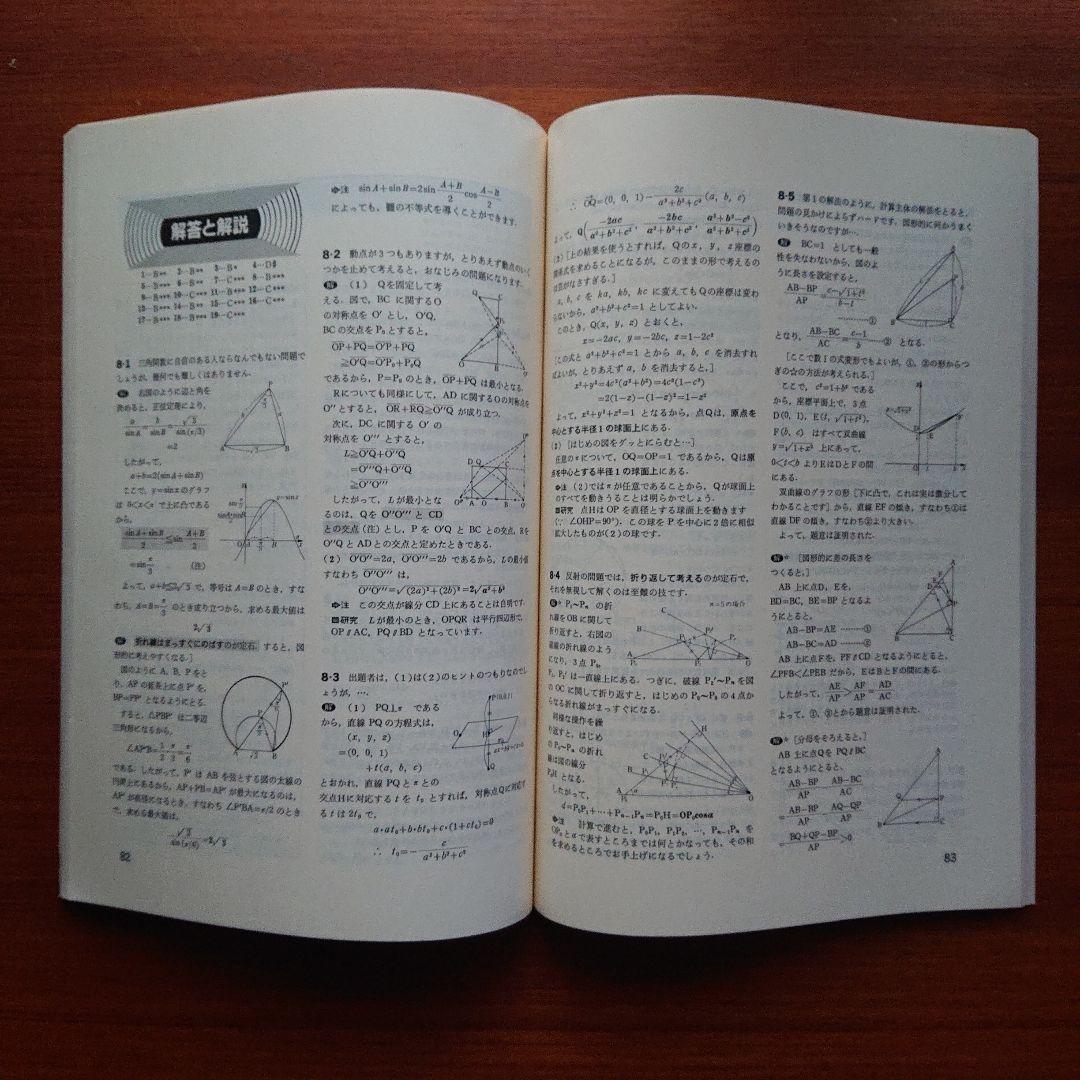 解答と解説
1…B** 2…B** 3…B* 4…D#
5…B** 6…B** 7…C*** 8…B***
9…B*** 10…C*** 11…B*** 12…C***
13…B*** 14…B** 15…C*** 16…C***
17…B*** 18…B*** 19…C***
8・1 三角関数に自信のある人ならなんでもない問題で
しょうが,幾何でも難しくはありません.
解 右図のように辺と角を
決めると,正弦定理により,
a/sinA=b/sinB=√3/sin(π/3)
=2
したがって,
a+b=2(sinA+sinB)
ここで,y=sinxのグラフ
は 0<x<π で上に凸である
から,
(sinA+sinB)/2≦sin (A+B)/2
=sin π/3 (注)
よって,a+b≦2√3 で,等号は A=B のとき,すな
わち,A=B=π/3 のとき成り立つから,求める最大値は
2√3
解 折れ線はまっすぐにのばすのが定石.すると,図
形的に考えやすくなる.]
図のように A,B,P をと
り,AP の延長上に点 P′ を,
BP=PP′ となるようにとる.
すると,△PBP′ は二等辺
三角形になるから,
∠AP′B=1/2・π/3=π/6
である.したがって,P′ は AB を弦とする図の太線の
円弧上にあるから,AP+PB=AP′ が最大になるのは,
AP′ が直径になるとき,すなわち ∠P′BA=π/2 のとき
で,求める最大値は,
√3/sin(π/6)=2√3
82
➾注 sinA+sinB=2sin (A+B)/2 cos (A−B)/2
によっても,▒の不等式を導くことができます.
8・2 動点が3つもありますが,とりあえず動点のいく
つかを止めて考えると,おなじみの問題になります.
解 (1) Qを固定して考
える.図で,BC に関するO
の対称点を O′ とし,O′Q,
BC の交点を P₀ とすると,
OP+PQ=O′P+PQ
≧O′Q=O′P₀+P₀Q
であるから,P=P₀ のとき,OP+PQ は最小となる.
Rについても同様にして,AD に関するOの対称点を
O″とすると,OR+RQ≧O″Q が成り立つ.
次に,DC に関する O′ の
対称点を O‴ とすると,
L≧O′Q+O″Q
=O‴Q+O″Q
≧O″O‴
したがって,Lが最小とな
るのは,Q を O″O‴ と CD
との交点(注)とし,P を O′Q と BC との交点,R を
O″Q と AD との交点と定めたときである.
(2) O′O″=2a,O′O‴=2b であるから,L の最小値
すなわち O″O‴ は,
O″O‴=√(2a)²+(2b)²=2√a²+b²
➾注 この交点が線分 CD 上にあることは自明です.
▤研究 Lが最小のとき,OPQR は平行四辺形で,
OP∥AC,PQ∥BD となっています.
8・3 出題者は,(1)は(2)のヒントのつもりなのでし
ょうが,…
解 (1) PQ⊥π である
から,直線 PQ の方程式は,
(x, y, z)
=(0, 0, 1)
+t(a, b, c)
とおかれ,直線 PQ と π との
交点Hに対応する t を t₀ とすれば,対称点Qに対応す
る t は 2t₀ で,
a・at₀+b・bt₀+c・(1+ct₀)=0
∴ t₀=−c/(a²+b²+c²)
∴ OQ=(0, 0, 1)−2c/(a²+b²+c²)(a, b, c)
よって,Q(−2ac/(a²+b²+c²), −2bc/(a²+b²+c²), (a²+b²−c²)/(a²+b²+c²))
(2) [上の結果を使うとすれば,Qの x,y,z 座標の
関係式を求めることになるが,このままの形で考えるの
は気がなさすぎる.]
a, b, c を ka, kb, kc に変えてもQの座標は変わ
らないから,a²+b²+c²=1 としてよい.
このとき,Q(x, y, z) とおくと,
x=−2ac, y=−2bc, z=1−2c²
[この式と a²+b²+c²=1 とから a,b,c を消去すれ
ばよいが,とりあえず a,b を消去すると,]
x²+y²=4c²(a²+b²)=4c²(1−c²)
=2(1−z)−(1−z)²=1−z²
よって,x²+y²+z²=1 となるから,点Qは,原点を
中心とする半径1の球面上にある.
(2) [はじめの図をグッとにらむと…]
任意のπについて,OQ=OP=1 であるから,Qは原
点を中心とする半径1の球面上にある.
➾注 (2)ではπが任意であることから,Qが球面上
のすべてを動きうることは明らかでしょう.
▤研究 点HはOPを直径とする球面上を動きます
(∵ ∠OHP=90°).この球を P を中心に2倍に相似
拡大したものが(2)の球です.
8・4 反射の問題では,折り返して考えるのが定石で,
それを無視して解くのは至難の技です.
解* P₁~Pₙ の折
れ線をOBに関して
折り返すと,右図の
破線の折れ線のよう
になり,3点 P₀,
P₁,P₂′ は一直線上にある.つぎに,破線 P₂′~Pₙ′ を
図の OC に関して折り返すと,はじめの P₀~Pₙ の4点か
らなる折れ線がまっすぐになる.
n=5の場合
同様な操作を繰
り返すと,はじめ
の P₀~Pₙ の折れ
線は図の線分
P₀H となる.
したがって,
d=P₀P₁+…+Pₙ₋₁Pₙ=P₀H=OP₀cosα
➾注 計算で進むと,P₀P₁,P₁P₂,…,Pₙ₋₁Pₙ を
OP₀とαで表すところまでは何とかなっても,その和
を求めるところでお手上げになるでしょう.
8・5 第1の解法のように,計算主体の解法をとると,
問題の見かけによらずハードです.図形的に何かうまく
いきそうなのですが…
解 BC=1 としても一般
性を失わないから,図のよ
うに長さを設定すると,
(AB−BP)/AP=(c−√1+t²)/(b−t)
………①
となり,(AB−BC)/AC=(c−1)/b ………② となる.
[ここで数Ⅰの式変形でもよいが,①,②の形からつ
ぎの☆の方法が考えられる.]
ここで,c²=1+b² である
から,座標平面上で,3点
D(0, 1),E(t, √1+t²),
F(b, c) はすべて双曲線
y=√1+x² 上にあって,
0<t<b よりEはDとFの間
にある.
双曲線のグラフの形[下に凸で,これは実は微分して
わかることです]から,直線 EF の傾き,すなわち①は
直線 DF の傾き,すなわち②より大きい.
よって,題意は証明された.
解* [図形的に差の長さを
つくると,]
AB 上に点D,E を,
BD=BC,BE=BP となるよ
うにとると,
AB−BP=AE ………①
AB−BC=AD ………②
AB 上に点Fを,PF∥CD となるようにとると,
∠PFB<∠PEB だから,EはBとFの間にある.
したがって,AE/AP>AF/AP=AD/AC
よって,①,②とから題意は証明された.
解* [分母をそろえると,]
AB 上に点Qを PQ∥BC
となるようにとると,
(AB−BP)/AP−(AB−BC)/AC
=(AB−BP)/AP−(AQ−QP)/AP
=(BQ+QP−BP)/AP>0
83